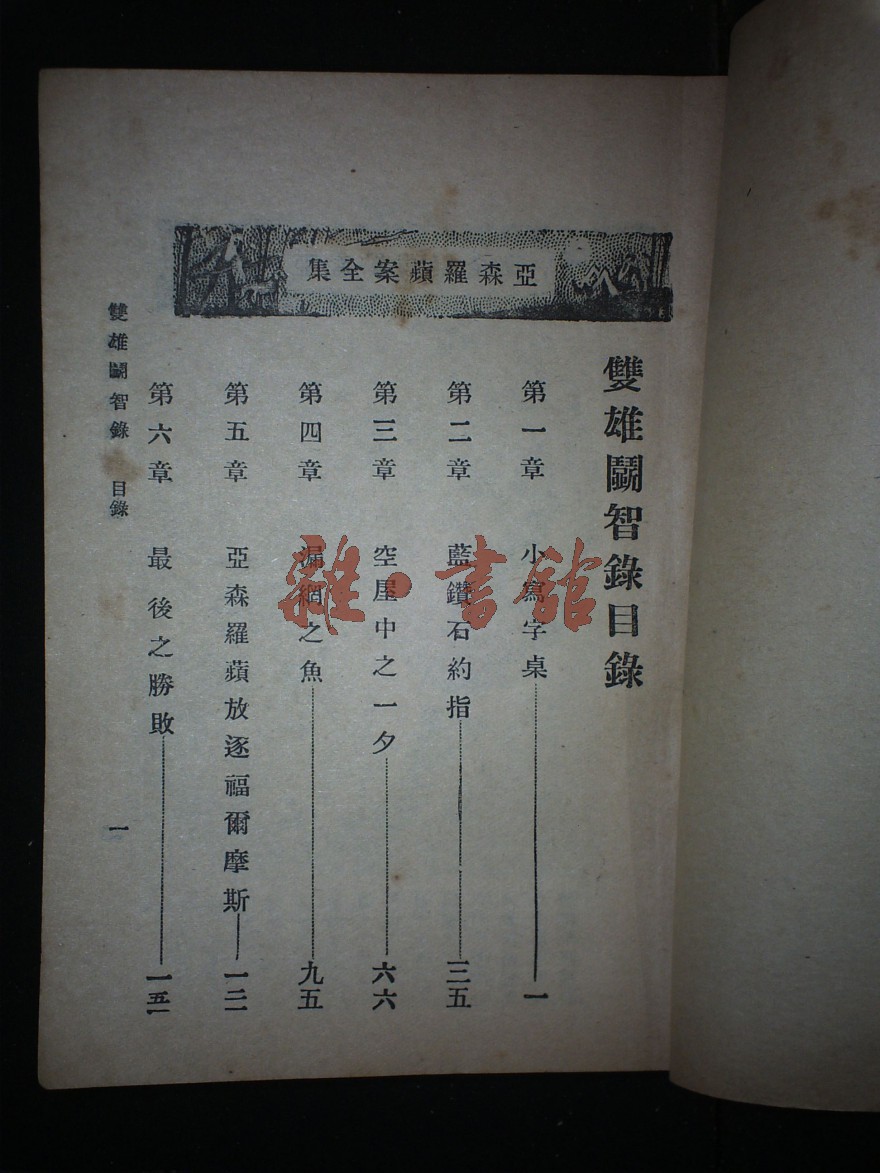 亞森羅蘋案全集
雙雄鬭智錄目錄
第一章 小寫字桌 一
第二章 藍鑽石約指 三五
第三章 空屋中之一夕 六六
第四章 漏網之魚 九五
第五章 亞森羅蘋放逐福爾摩斯
第六章 最後之勝敗
雙雄鬭智錄 目錄 一
雜·書館